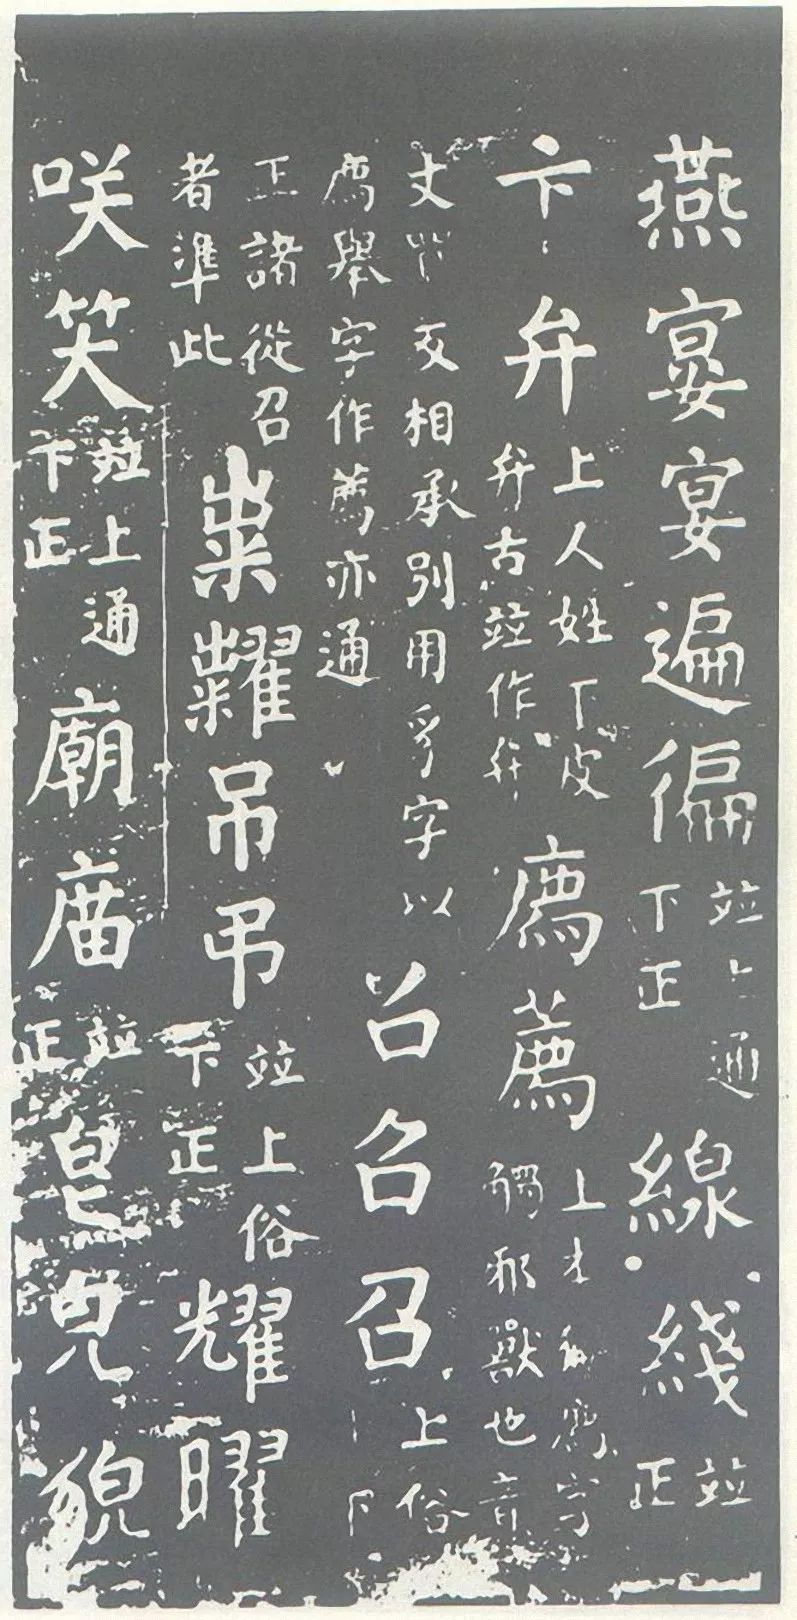 燕宴宴遍徧並上通下正線綫並正
卞弁上人姓下皮弁古並作弁廌薦上廌字觸邪獸也音
丈反相承別用豸字以廌舉字作薦亦通召召召上俗下
正諸從召者準此粜糶吊弔並上俗下正耀曜
咲笑並上通下正廟庿並正皃皃貌